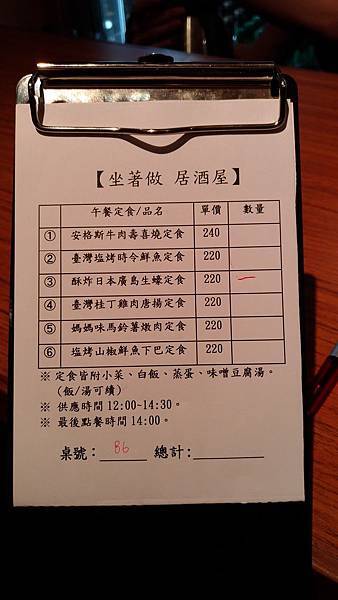 【坐著做 居酒屋】
午餐定食/品名 單價 數量
① 安格斯牛肉壽喜燒定食 240
② 臺灣塩烤時令鮮魚定食 220
③ 酥炸日本廣島生蠔定食 220 一
④ 臺灣桂丁雞肉唐揚定食 220
⑤ 媽媽味馬鈴薯燉肉定食 220
⑥ 塩烤山椒鮮魚下巴定食 220
※ 定食皆附小菜、白飯、蒸蛋、味噌豆腐湯。
(飯/湯可續)
※ 供應時間 12:00~14:30。
※ 最後點餐時間 14:00。
桌號:B6 總計: